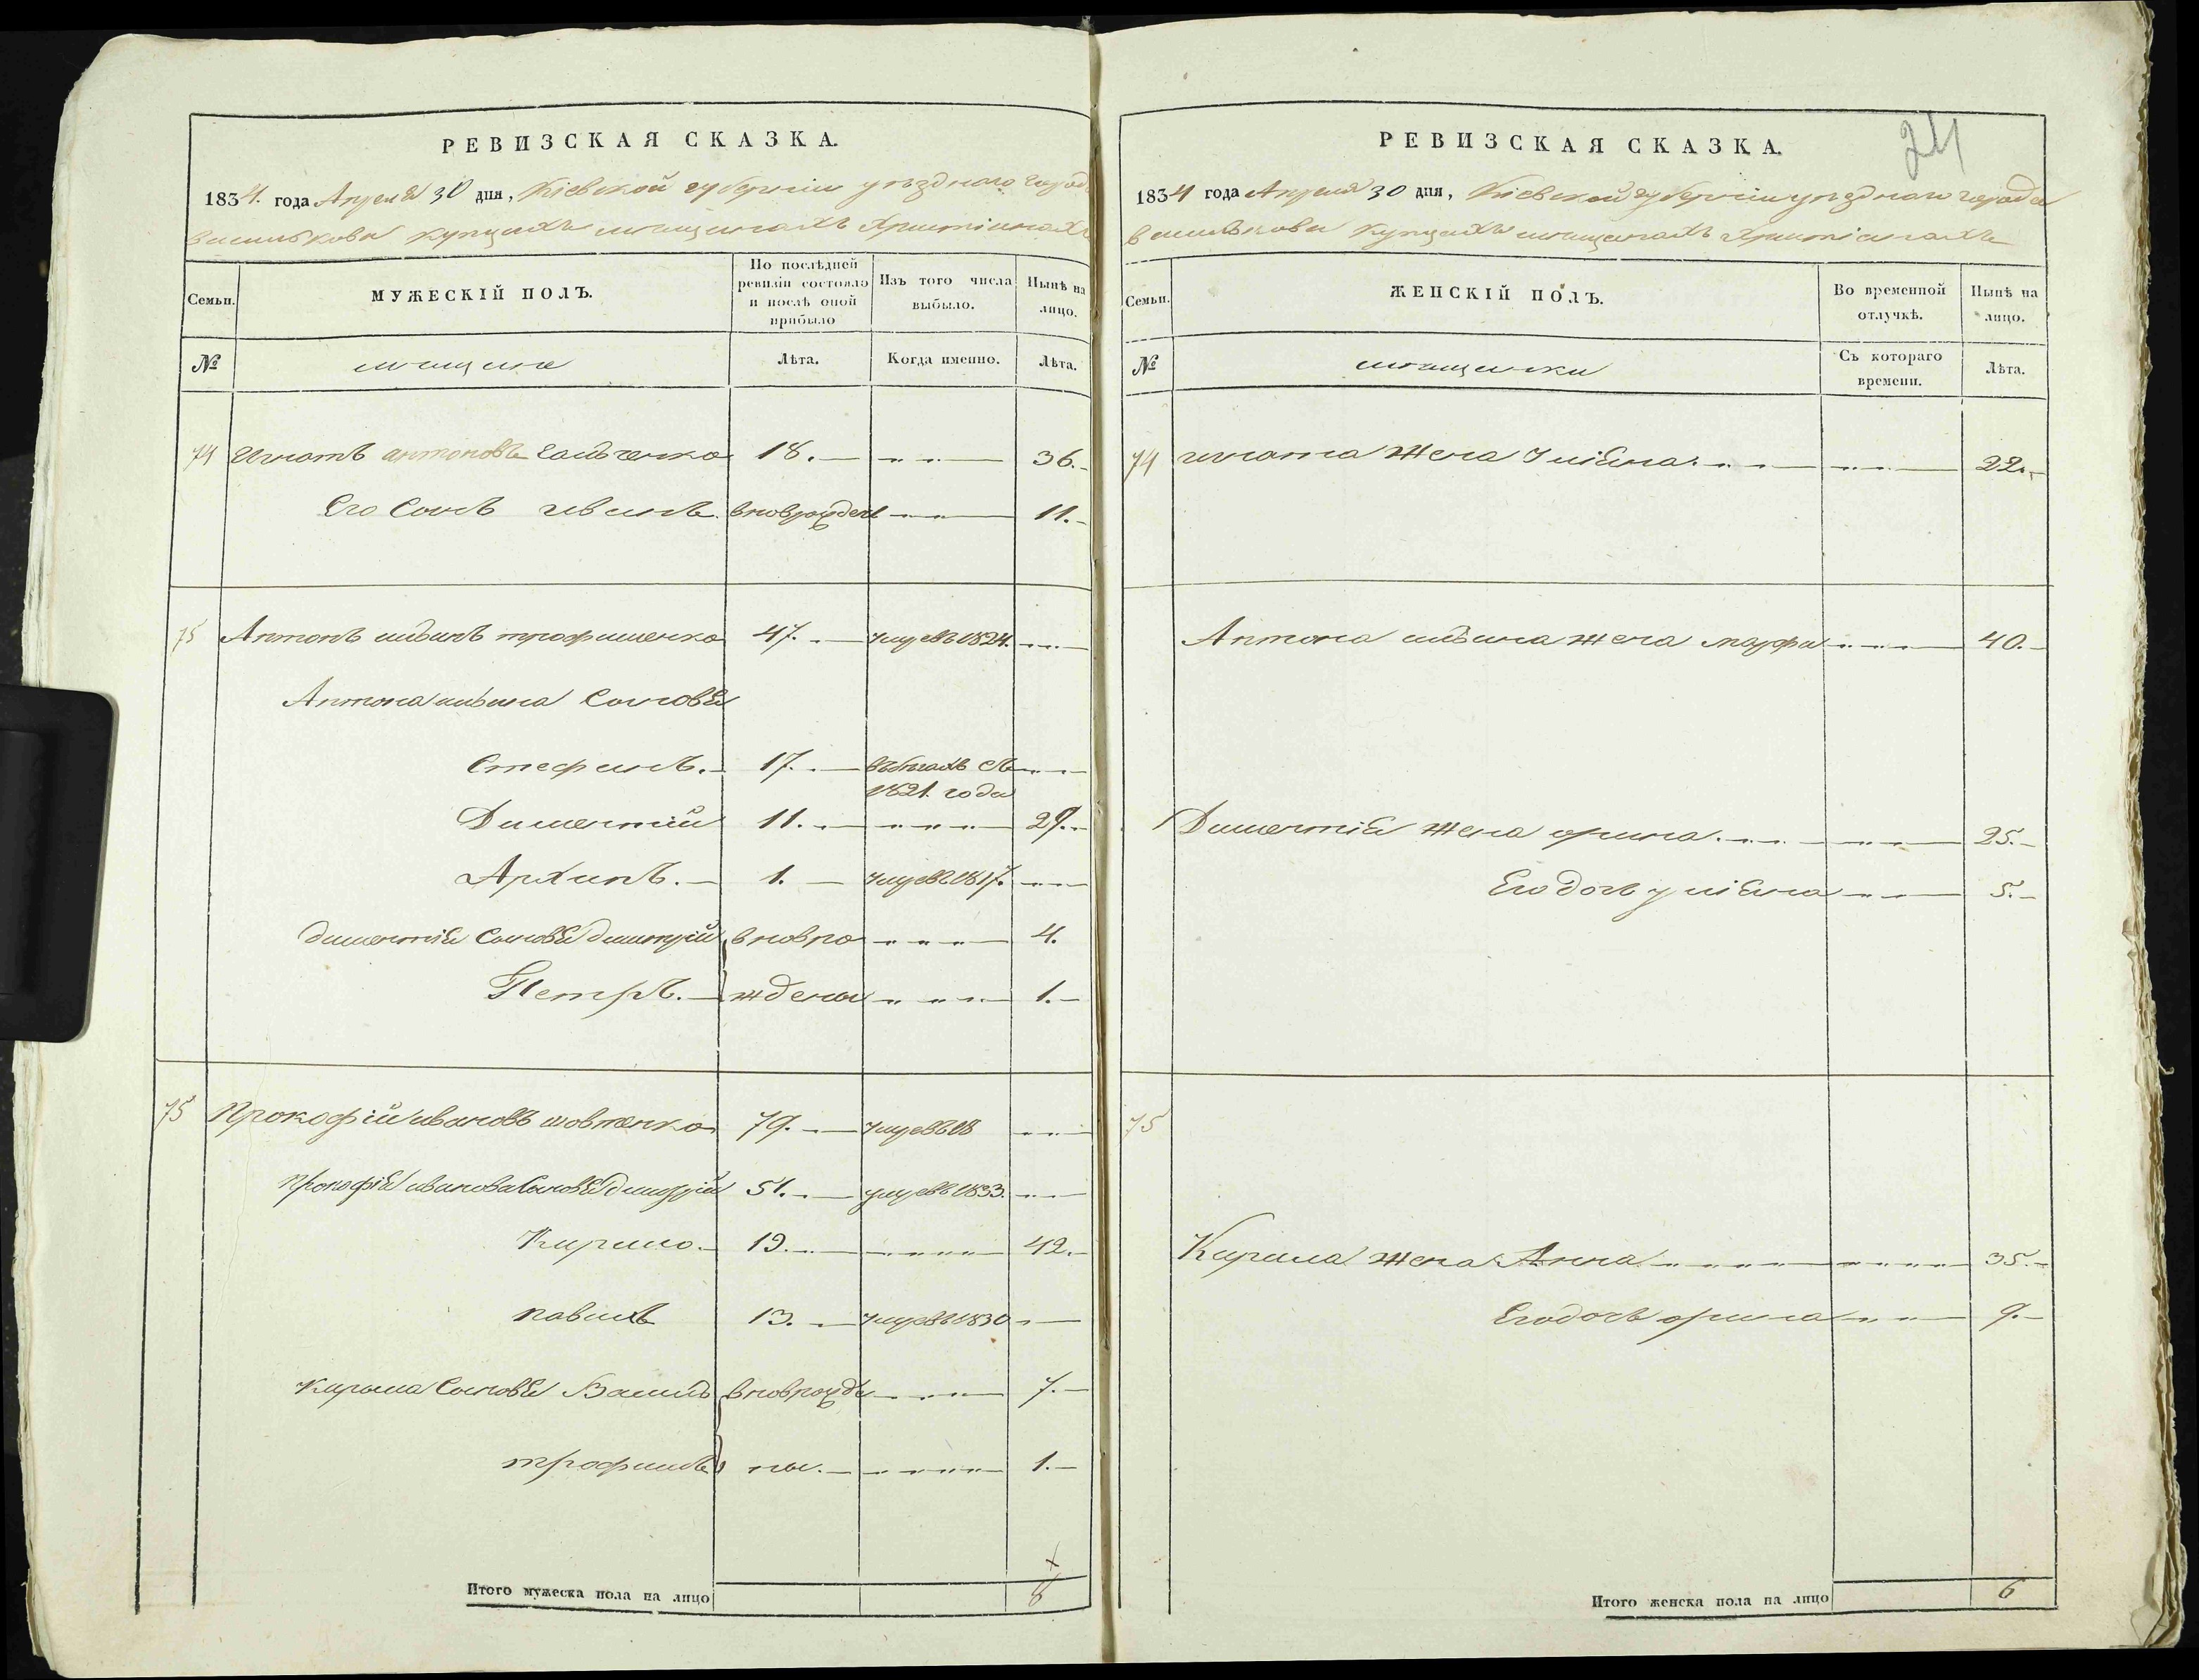 РЕВИЗСКАЯ СКАЗКА.
1834. года Апреля 30 дня, Кіевской губерніи уѣзднаго города
Василькова купцахъ мѣщанахъ Христіанахъ
Семьи.
МУЖЕСКІЙ ПОЛЪ.
По послѣдней ревизіи состояло и послѣ оной прибыло
Изъ того числа выбыло.
Нынѣ на лицо.
№
мещане
Лѣта.
Когда именно.
Лѣта.
74 Игнатъ антоновъ 18. 36.
Его Сынъ иванъ вновьрожден 11.
75 Антонъ трофименко 47. умревъ 1824.
Антона Сыновья
Стефанъ. 17. въбегахъ съ
1821. года
Дементий 11. 29.
Архипъ. 1. умревъ 1817.
дементія Сыновья димитрій вновро 4.
Петръ. ждены 1.
75 Прокофій ивановъ шовтенко 79. умревъ 18
Прокофія иванова Сыновья димитрій 51. умревъ 1833.
Кирило. 19. 42.
павилъ 13. умревъ 1830
Кирила Сыновья Василь вноврожде 7.
трофимъ ны. 1.
Итого мужеска пола на лицо 8
РЕВИЗСКАЯ СКАЗКА.
24
1834 года Апреля 30 дня, Кіевской губерніи уѣзднаго города
Василькова Купцахъ мѣщанахъ Христіанахъ
Семьи.
ЖЕНСКІЙ ПОЛЪ.
Во временной отлучкѣ.
Нынѣ на лицо.
№
мещанки
Съ котораго времени.
Лѣта.
74 игната жена Уліяна. 22.
Антона жена марфа 40.
Дементія жена орина. 25.
Его дочь уліяна 5.
75
Кирила жена Анна 35.
Его дочь орина 9.
Итого женска пола на лицо 6